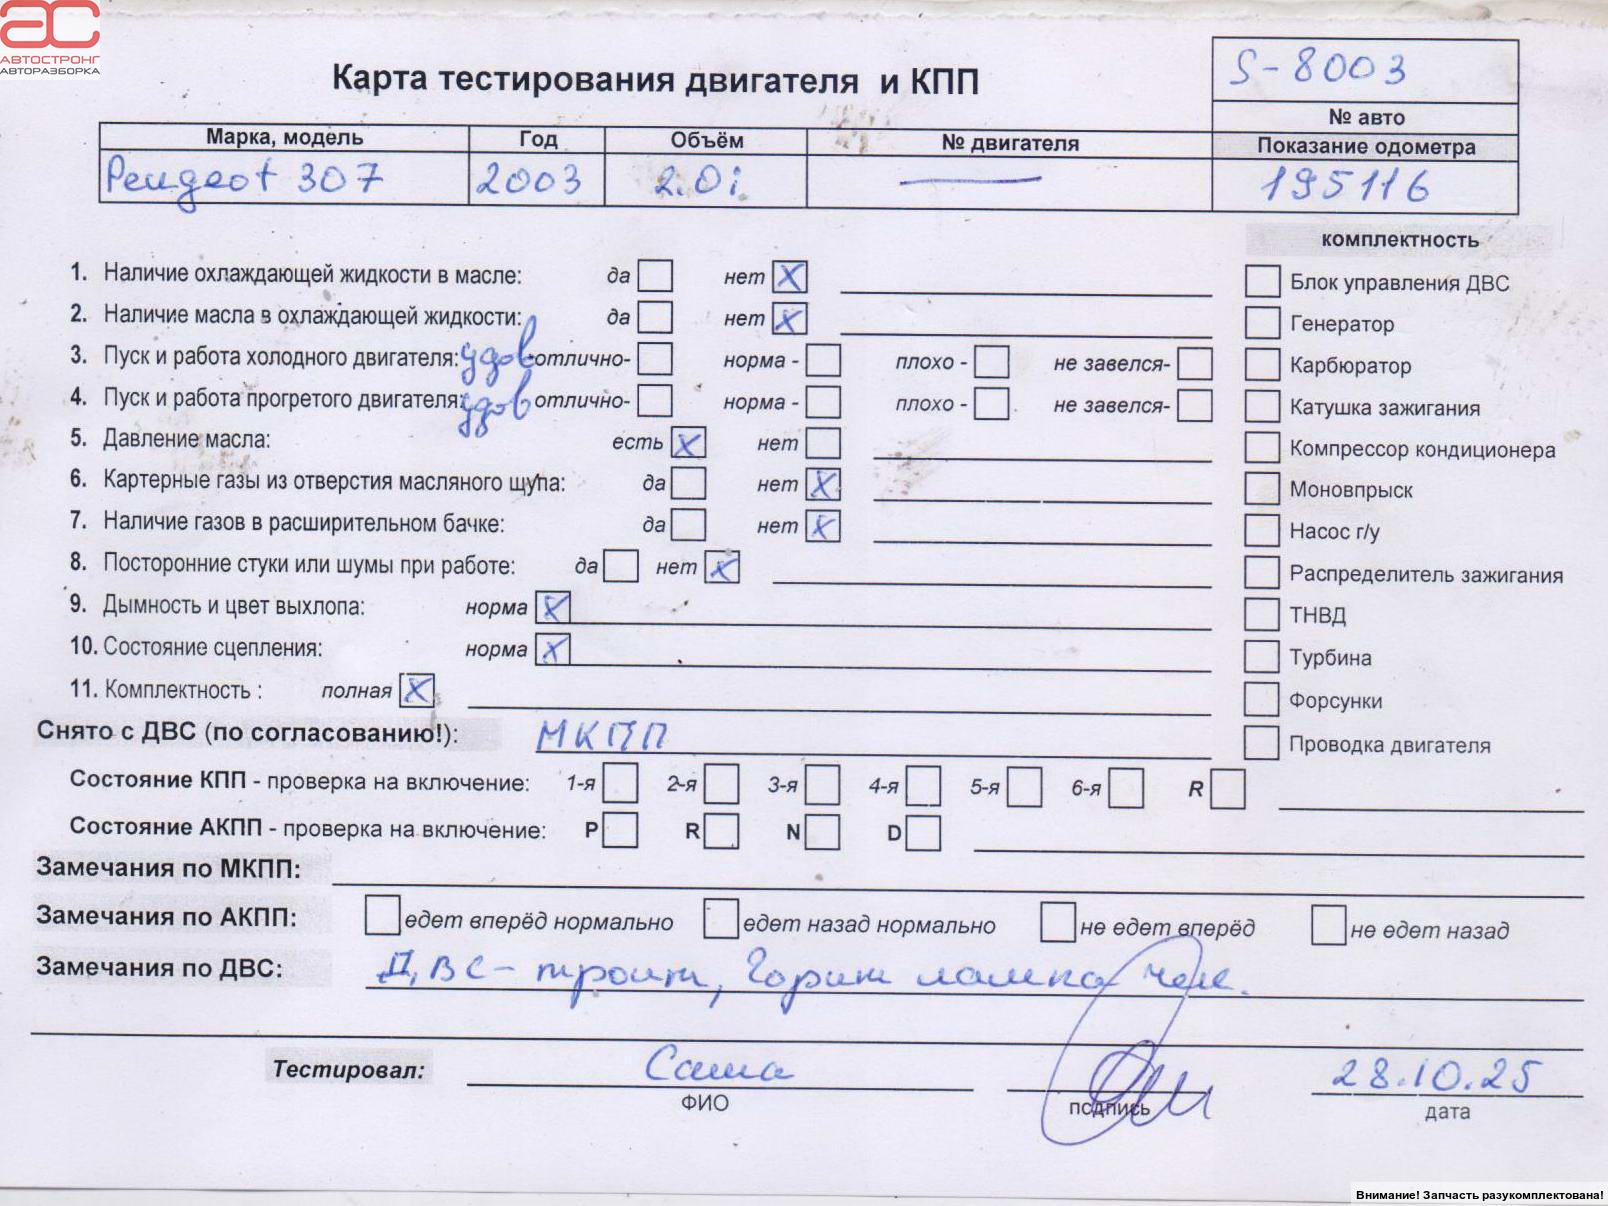 АС
АВТОСТРОНГ
АВТОРАЗБОРКА
Карта тестирования двигателя и КПП
S-8003
№ авто
Марка, модель Год Объём № двигателя Показание одометра
Peugeot 307 2003 2.0i — 195116
комплектность
1. Наличие охлаждающей жидкости в масле: да нет X
Блок управления ДВС
2. Наличие масла в охлаждающей жидкости: да нет X
Генератор
3. Пуск и работа холодного двигателя: удов отлично- норма - плохо - не завелся-
Карбюратор
4. Пуск и работа прогретого двигателя: удов отлично- норма - плохо - не завелся-
Катушка зажигания
5. Давление масла: есть X нет
Компрессор кондиционера
6. Картерные газы из отверстия масляного щупа: да нет X
Моновпрыск
7. Наличие газов в расширительном бачке: да нет X
Насос г/у
8. Посторонние стуки или шумы при работе: да нет X
Распределитель зажигания
9. Дымность и цвет выхлопа: норма X
ТНВД
10. Состояние сцепления: норма X
Турбина
11. Комплектность : полная X
Форсунки
Снято с ДВС (по согласованию!): МКПП
Проводка двигателя
Состояние КПП - проверка на включение: 1-я 2-я 3-я 4-я 5-я 6-я R
Состояние АКПП - проверка на включение: P R N D
Замечания по МКПП:
Замечания по АКПП: едет вперёд нормально едет назад нормально не едет вперёд не едет назад
Замечания по ДВС: ДВС - троит, Горит лампа чек.
Тестировал: Саша 28.10.25
ФИО подпись дата
Внимание! Запчасть разукомплектована!